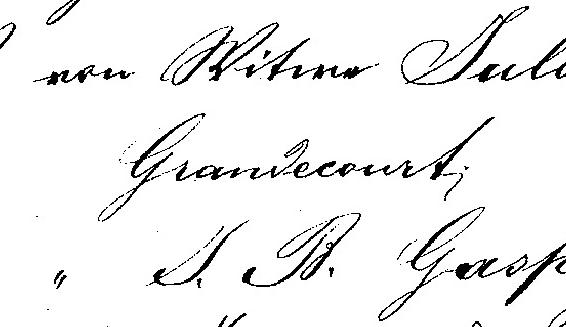 von Witwe Jul
Grandecourt,
" J. B. Gasp